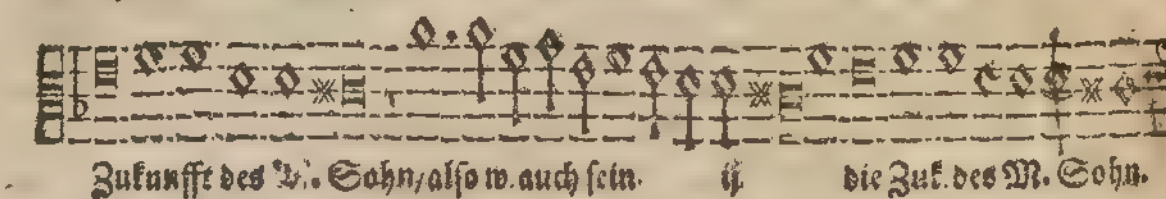 Zukunfft des M. Sohn/also w. auch sein. ij. die Zuk. des M. Sohn.